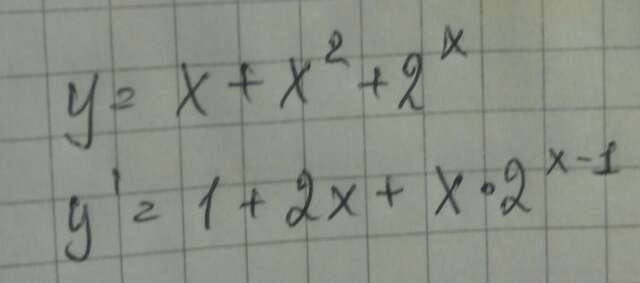 y = x + x² + 2ˣ
y' = 1 + 2x + x·2ˣ⁻¹